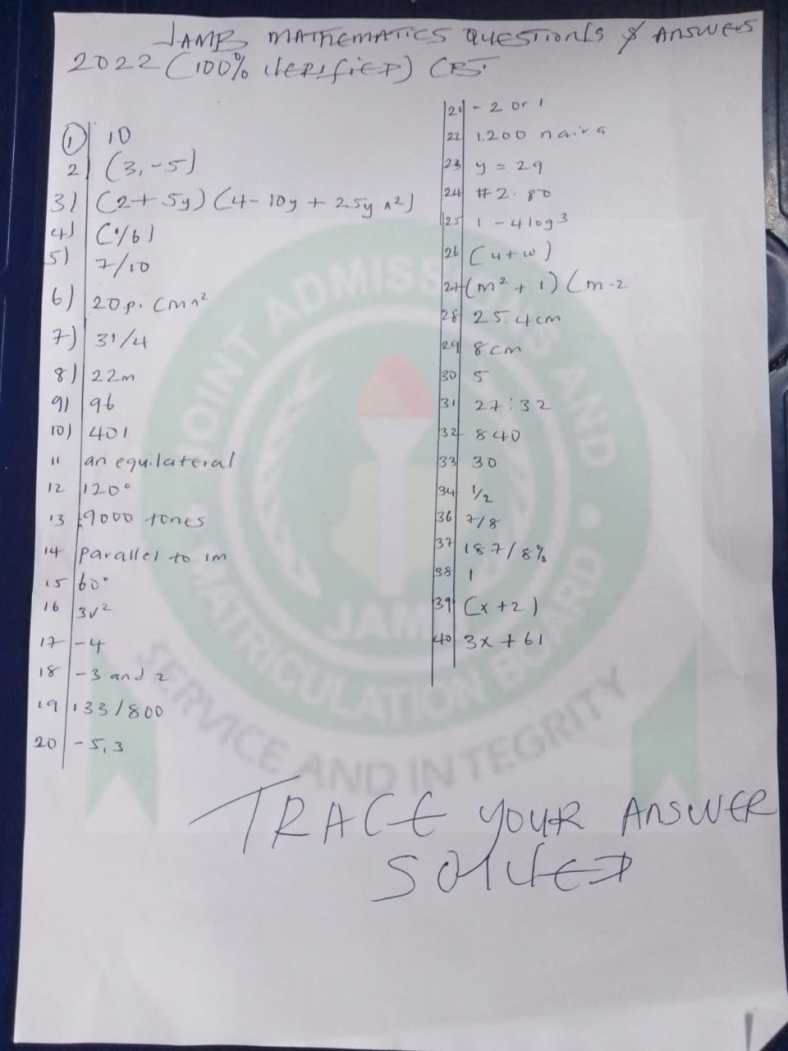 JAMB MATHEMATICS QUESTIONS & ANSWERS
2022 (100% VERIFIED) CBT.
1 10
2) (3, -5)
3) (2 + 5y) (4 - 10y + 25y ^2)
4)
5) 7/10
6) 20 pi cm^2
7) 31/4
8) 22m
9) 96
10) 401
11 an equilateral
12 120°
13 9000 tones
14 parallel to 1m
15 60°
16 3v2
17 -4
18 -3 and 2
19 133/800
20 -5, 3
21 -2 or 1
22 1.200 naira
23 y = 29
24 #2.80
25 1 - 4log3
26 (u + w)
27 (m2 + 1) (m-2
28 25.4cm
29 8cm
30 5
31 27:32
32 840
33 30
34 1/2
36 7/8
37 18 7/8%
38 1
39 (x + 2)
40 3x + 61
JOINT ADMISSIONS AND
MATRICULATION BOARD
JAMB
SERVICE AND INTEGRITY
TRACE YOUR ANSWER
SOLVED